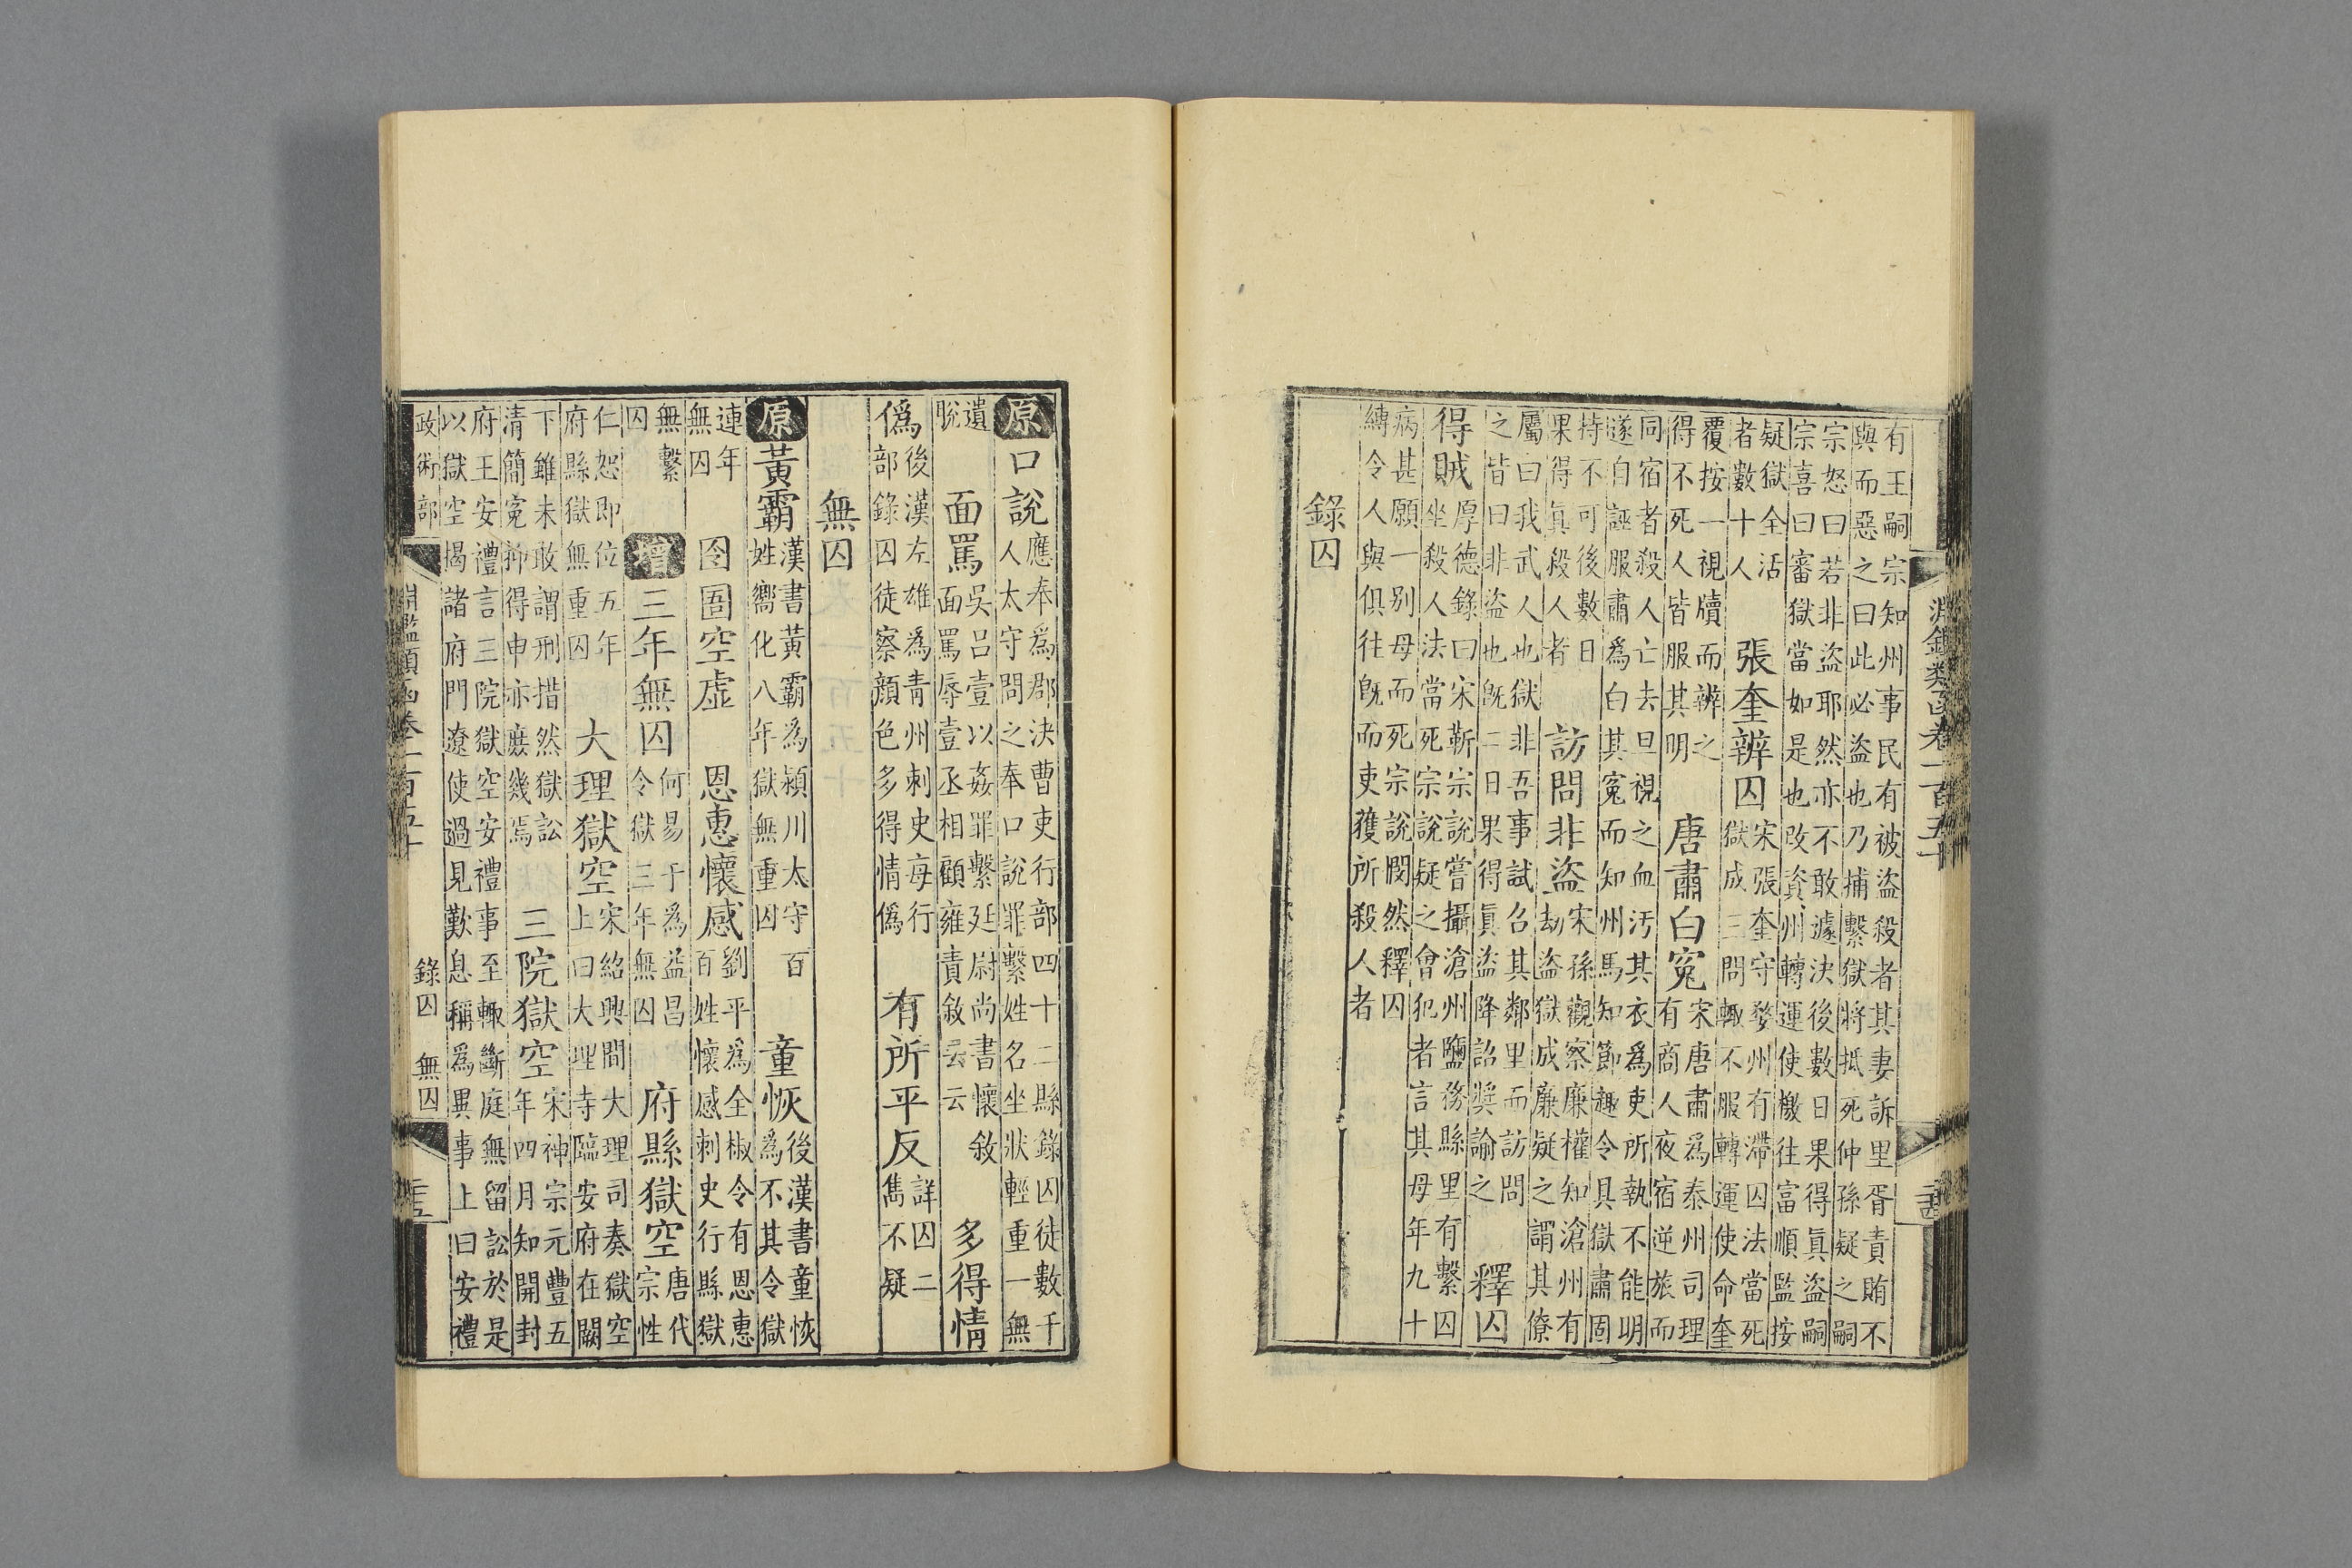 淵鑑類函卷一百五十
有王嗣宗知州事民有被盜殺者其妻訴里胥責賄不
與而惡之曰此必盜也乃捕繫獄將抵死仲孫疑之嗣
宗怒曰若非盜耶然亦不敢遽決後數日果得眞盜嗣
宗喜曰審獄當如是也改資州轉運使檄往富順監按
疑獄全活
者數十人
張奎辨囚
宋張奎守婺州有滯囚法當死
獄成三問輒不服轉運使命奎
覆按一視牘而辨之
得不死人皆服其明
唐肅白冤
宋唐肅爲泰州司理
有商人夜宿逆旅而
同宿者殺人亡去旦視之血汚其衣爲吏所執不能明
遂自誣服肅爲白其冤而知州馬知節趣令具獄肅固
持不可後數日
果得眞殺人者
訪問非盜
宋孫觀察廉權知滄州有
劫盜獄成廉疑之謂其僚
屬曰我武人也獄非吾事試召其鄰里而訪問
之皆曰非盜也旣二日果得眞盜降詔奬諭之
釋囚
得賊
厚德錄曰宋靳宗說嘗攝滄州鹽務縣里有繫囚
坐殺人法當死宗說疑之會犯者言其母年九十
病甚願一別母而死宗說閔然釋囚
縛令人與俱往旣而吏獲所殺人者
錄囚
原口說
應奉爲郡決曹吏行部四十二縣錄囚徒數千
人太守問之奉口說罪繫姓名坐狀輕重一無
遺
脫
面罵
吳呂壹以姦罪繫廷尉尚書懷敘
面罵辱壹丞相顧雍責敘云云
多得情
僞
後漢左雄爲青州刺史每行
部錄囚徒察顏色多得情僞
有所平反
詳囚二
雋不疑
無囚
原黃霸
漢書黃霸爲潁川太守百
姓嚮化八年獄無重囚
童恢
後漢書童恢
爲不其令獄
連年
無囚
囹圄空虛
恩惠懷感
劉平爲全椒令有恩惠
百姓懷感刺史行縣獄
無繫
囚
增三年無囚
何易于爲益昌
令獄三年無囚
府縣獄空
唐代
宗性
仁恕即位五年
府縣獄無重囚
大理獄空
宋紹興間大理司奏獄空
上曰大理寺臨安府在闕
下雖未敢謂刑措然獄訟
清簡冤抑得申亦庶幾焉
三院獄空
宋神宗元豐五
年四月知開封
府王安禮言三院獄空安禮事至輒斷庭無留訟於是
以獄空揭諸府門遼使過見歎息稱爲異事上曰安禮
政術部 淵鑑類函卷一百五十 錄囚 無囚 二十五